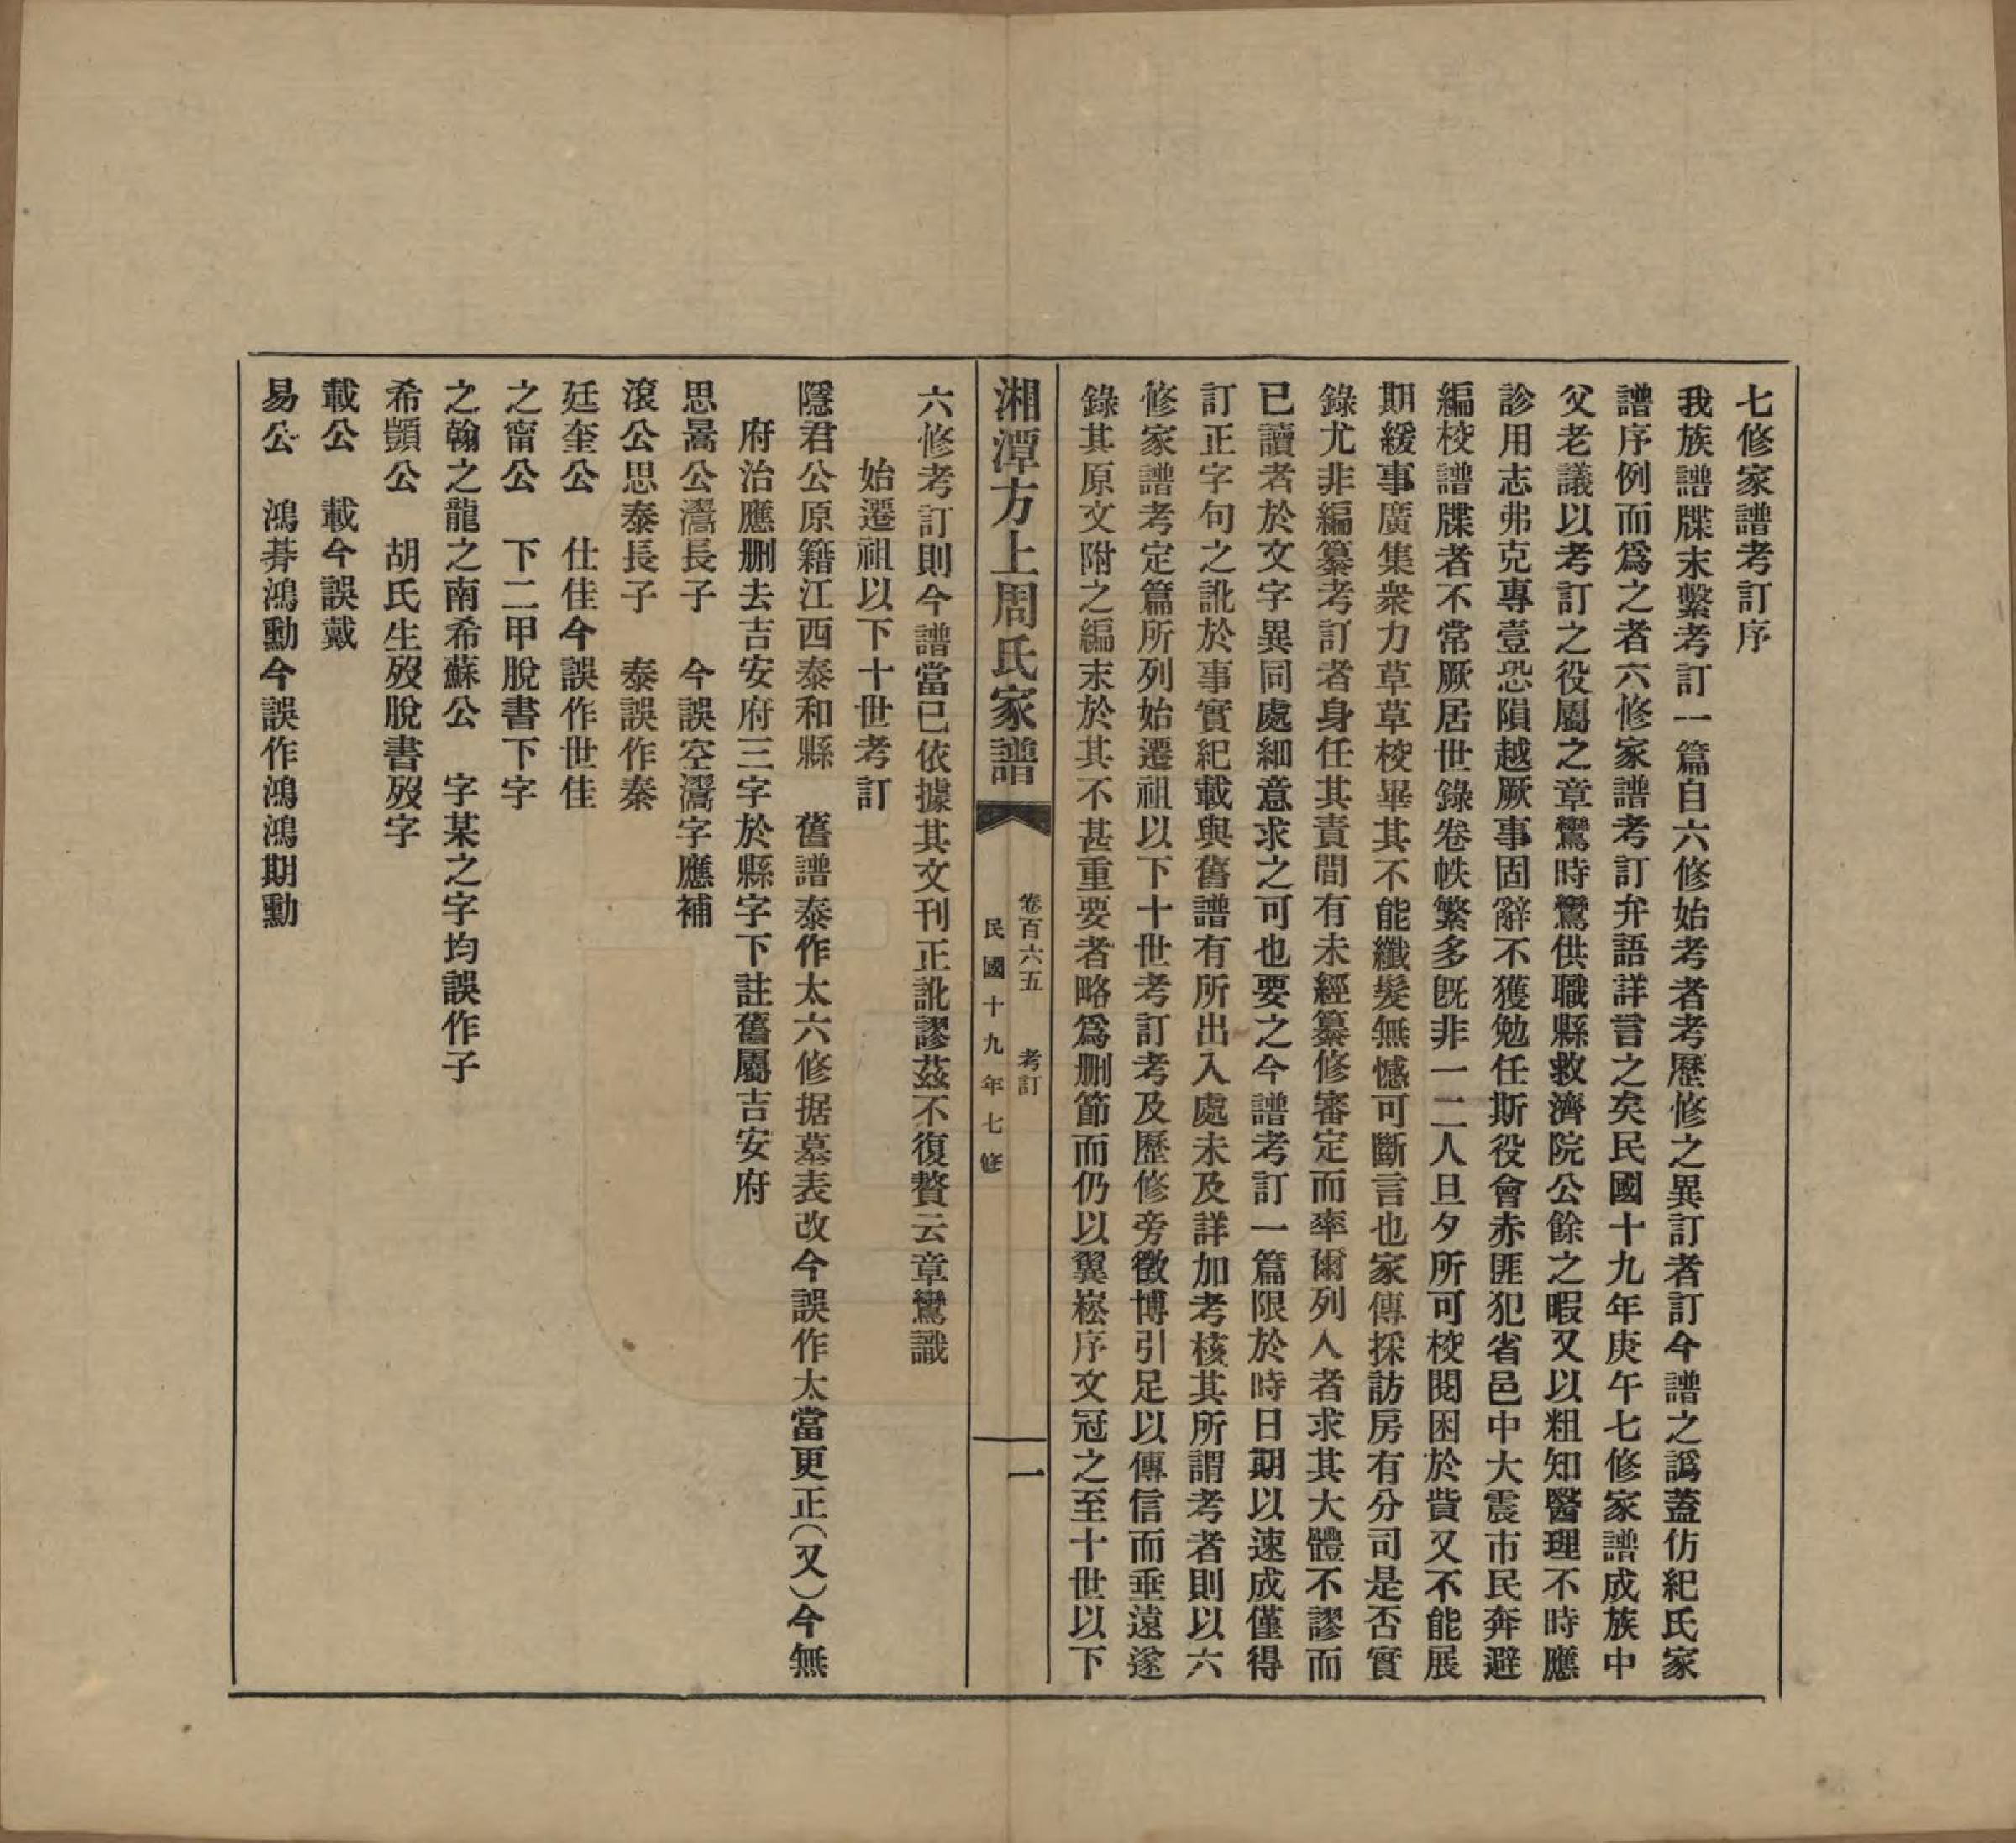 七修家譜考訂序
我族譜牒末繫考訂一篇自六修始考者考歷修之異訂者訂今譜之譌蓋仿紀氏家
譜序例而爲之者六修家譜考訂弁語詳言之矣民國十九年庚午七修家譜成族中
父老議以考訂之役屬之章鸞時鸞供職縣救濟院公餘之暇又以粗知醫理不時應
診用志弗克專壹恐隕越厥事固辭不獲勉任斯役會赤匪犯省邑中大震市民奔避
編校譜牒者不常厥居世錄卷帙繁多旣非一二人旦夕所可校閱困於貲又不能展
期緩事廣集衆力草草校畢其不能纖髮無憾可斷言也家傳採訪房有分司是否實
錄尤非編纂考訂者身任其責間有未經纂修審定而率爾列入者求其大體不謬而
已讀者於文字異同處細意求之可也要之今譜考訂一篇限於時日期以速成僅得
訂正字句之訛於事實紀載與舊譜有所出入處未及詳加考核其所謂考者則以六
修家譜考定篇所列始遷祖以下十世考訂考及歷修旁徵博引足以傳信而垂遠遂
錄其原文附之編末於其不甚重要者略爲删節而仍以翼崧序文冠之至十世以下
湘潭方上周氏家譜
卷百六五　考訂
民國十九年七修
一
六修考訂則今譜當已依據其文刊正訛謬茲不復贅云章鸞識
始遷祖以下十世考訂
隱君公原籍江西泰和縣　舊譜泰作太六修据墓表改今誤作太當更正（又）今無
府治應删去吉安府三字於縣字下註舊屬吉安府
思暠公灊長子　今誤空灊字應補
滾公思泰長子　泰誤作秦
廷奎公　仕佳今誤作世佳
之甯公　下二甲脫書下字
之翰之龍之南希蘇公　字某之字均誤作子
希顗公　胡氏生歿脫書歿字
載公　載今誤戴
易公　鴻朞鴻勳今誤作鴻鴻期勳